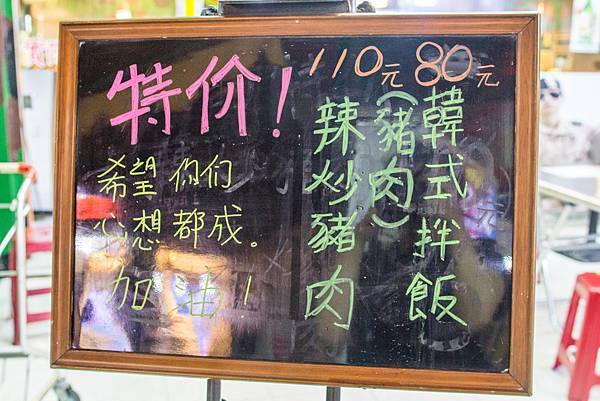 特价!
110元
80元
韓式拌飯
(豬肉)
辣炒豬肉
希望你们
心想都成。
加油!